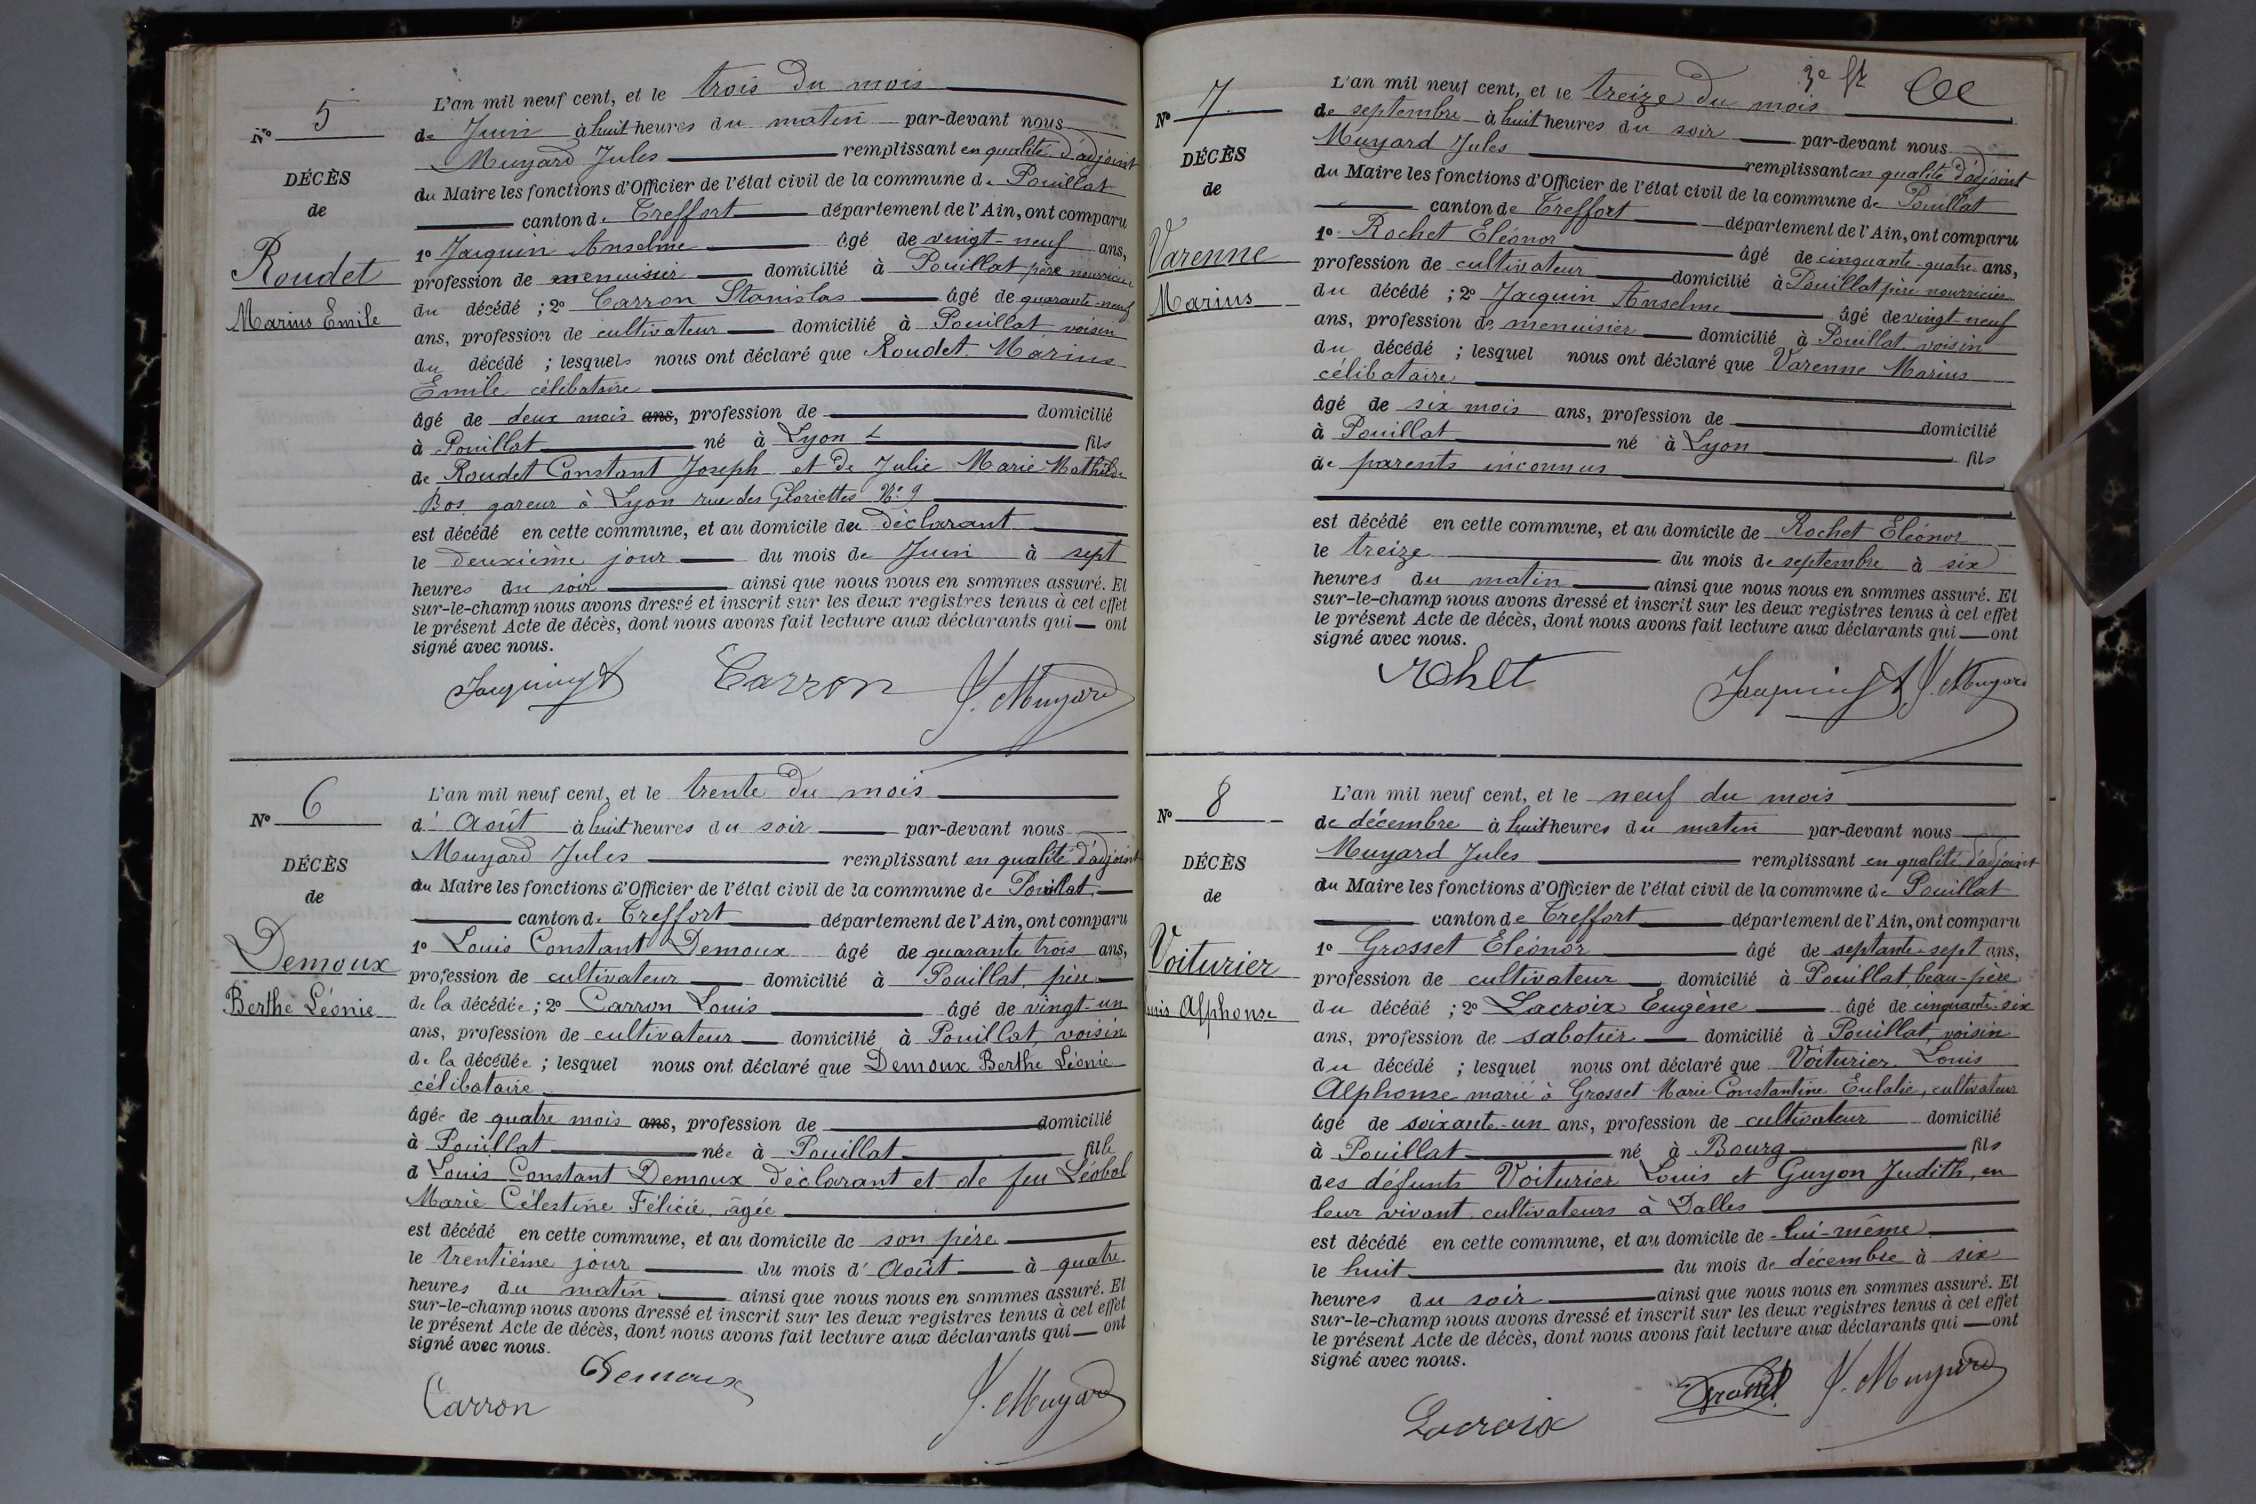 N° 5
DÉCÈS
de
Roudet
Marius Emile
L'an mil neuf cent, et le trois du mois
de Juin à huit heures du matin par-devant nous
Muyard Jules remplissant en qualité d'adjoint
du Maire les fonctions d'Officier de l'état civil de la commune de Pouillat
canton de Treffort département de l'Ain, ont comparu
1° Jacquin Anselme âgé de vingt-neuf ans,
profession de menuisier domicilié à Pouillat père nourricier
du décédé ; 2° Carron Stanislas âgé de quarante-neuf
ans, profession de cultivateur domicilié à Pouillat voisin
du décédé ; lesquels nous ont déclaré que Roudet Marius
Emile célibataire
âgé de deux mois ans, profession de domicilié
à Pouillat né à Lyon fils
de Roudet Constant Joseph et de Julie Marie Mathilde
Bos gareur à Lyon rue des Gloriettes N° 9
est décédé en cette commune, et au domicile du déclarant
le deuxième jour du mois de Juin à sept
heures du soir ainsi que nous nous en sommes assuré. Et
sur-le-champ nous avons dressé et inscrit sur les deux registres tenus à cet effet
le présent Acte de décès, dont nous avons fait lecture aux déclarants qui ont
signé avec nous.
Jacquin Carron J. Muyard
N° 6
DÉCÈS
de
Demoux
Berthe Léonie
L'an mil neuf cent, et le trente du mois
d' Août à huit heures du soir par-devant nous
Muyard Jules remplissant en qualité d'adjoint
au Maire les fonctions d'Officier de l'état civil de la commune de Pouillat
canton de Treffort département de l'Ain, ont comparu
1° Louis Constant Demoux âgé de quarante trois ans,
profession de cultivateur domicilié à Pouillat, père
de la décédée ; 2° Carron Louis âgé de vingt-un
ans, profession de cultivateur domicilié à Pouillat, voisin
de la décédée ; lesquel nous ont déclaré que Demoux Berthe Léonie
célibataire
âgée de quatre mois ans, profession de domicilié
à Pouillat née à Pouillat fille
d Louis Constant Demoux déclarant et de feu Léobol
Marie Célestine Félicie, âgée
est décédé en cette commune, et au domicile de son père
le trentième jour du mois d' Août à quatre
heures du matin ainsi que nous nous en sommes assuré. Et
sur-le-champ nous avons dressé et inscrit sur les deux registres tenus à cet effet
le présent Acte de décès, dont nous avons fait lecture aux déclarants qui ont
signé avec nous.
Demoux
Carron J. Muyard
3e
N° 7
DÉCÈS
de
Varenne
Marius
L'an mil neuf cent, et le treize du mois
de septembre à huit heures du soir par-devant nous
Muyard Jules remplissant en qualité d'adjoint
du Maire les fonctions d'Officier de l'état civil de la commune de Pouillat
canton de Treffort département de l'Ain, ont comparu
1° Rochet Eléonor âgé de cinquante-quatre ans,
profession de cultivateur domicilié à Pouillat père nourricier
du décédé ; 2° Jacquin Anselme âgé de vingt-neuf
ans, profession de menuisier domicilié à Pouillat voisin
du décédé ; lesquel nous ont déclaré que Varenne Marius
célibataire
âgé de six mois ans, profession de domicilié
à Pouillat né à Lyon fils
de parents inconnus
est décédé en cette commune, et au domicile de Rochet Eléonor
le treize du mois de septembre à six
heures du matin ainsi que nous nous en sommes assuré. Et
sur-le-champ nous avons dressé et inscrit sur les deux registres tenus à cet effet
le présent Acte de décès, dont nous avons fait lecture aux déclarants qui ont
signé avec nous.
Jacquin J. Muyard
N° 8
DÉCÈS
de
Voiturier
Louis Alphonse
L'an mil neuf cent, et le neuf du mois
de décembre à huit heures du matin par-devant nous
Muyard Jules remplissant en qualité d'adjoint
au Maire les fonctions d'Officier de l'état civil de la commune de Pouillat
canton de Treffort département de l'Ain, ont comparu
1° Grosset Eléonor âgé de septante-sept ans,
profession de cultivateur domicilié à Pouillat, beau-père
du décédé ; 2° Lacroix Eugène âgé de cinquante-six
ans, profession de sabotier domicilié à Pouillat, voisin
du décédé ; lesquel nous ont déclaré que Voiturier Louis
Alphonse marié à Grosset Marie Constantine Eulalie, cultivateur
âgé de soixante-un ans, profession de cultivateur domicilié
à Pouillat né à Bourg fils
des défunts Voiturier Louis et Guyon Judith, en
leur vivant cultivateurs à Dalles
est décédé en cette commune, et au domicile de lui-même
le huit du mois de décembre à six
heures du soir ainsi que nous nous en sommes assuré. Et
sur-le-champ nous avons dressé et inscrit sur les deux registres tenus à cet effet
le présent Acte de décès, dont nous avons fait lecture aux déclarants qui ont
signé avec nous.
Lacroix J. Muyard